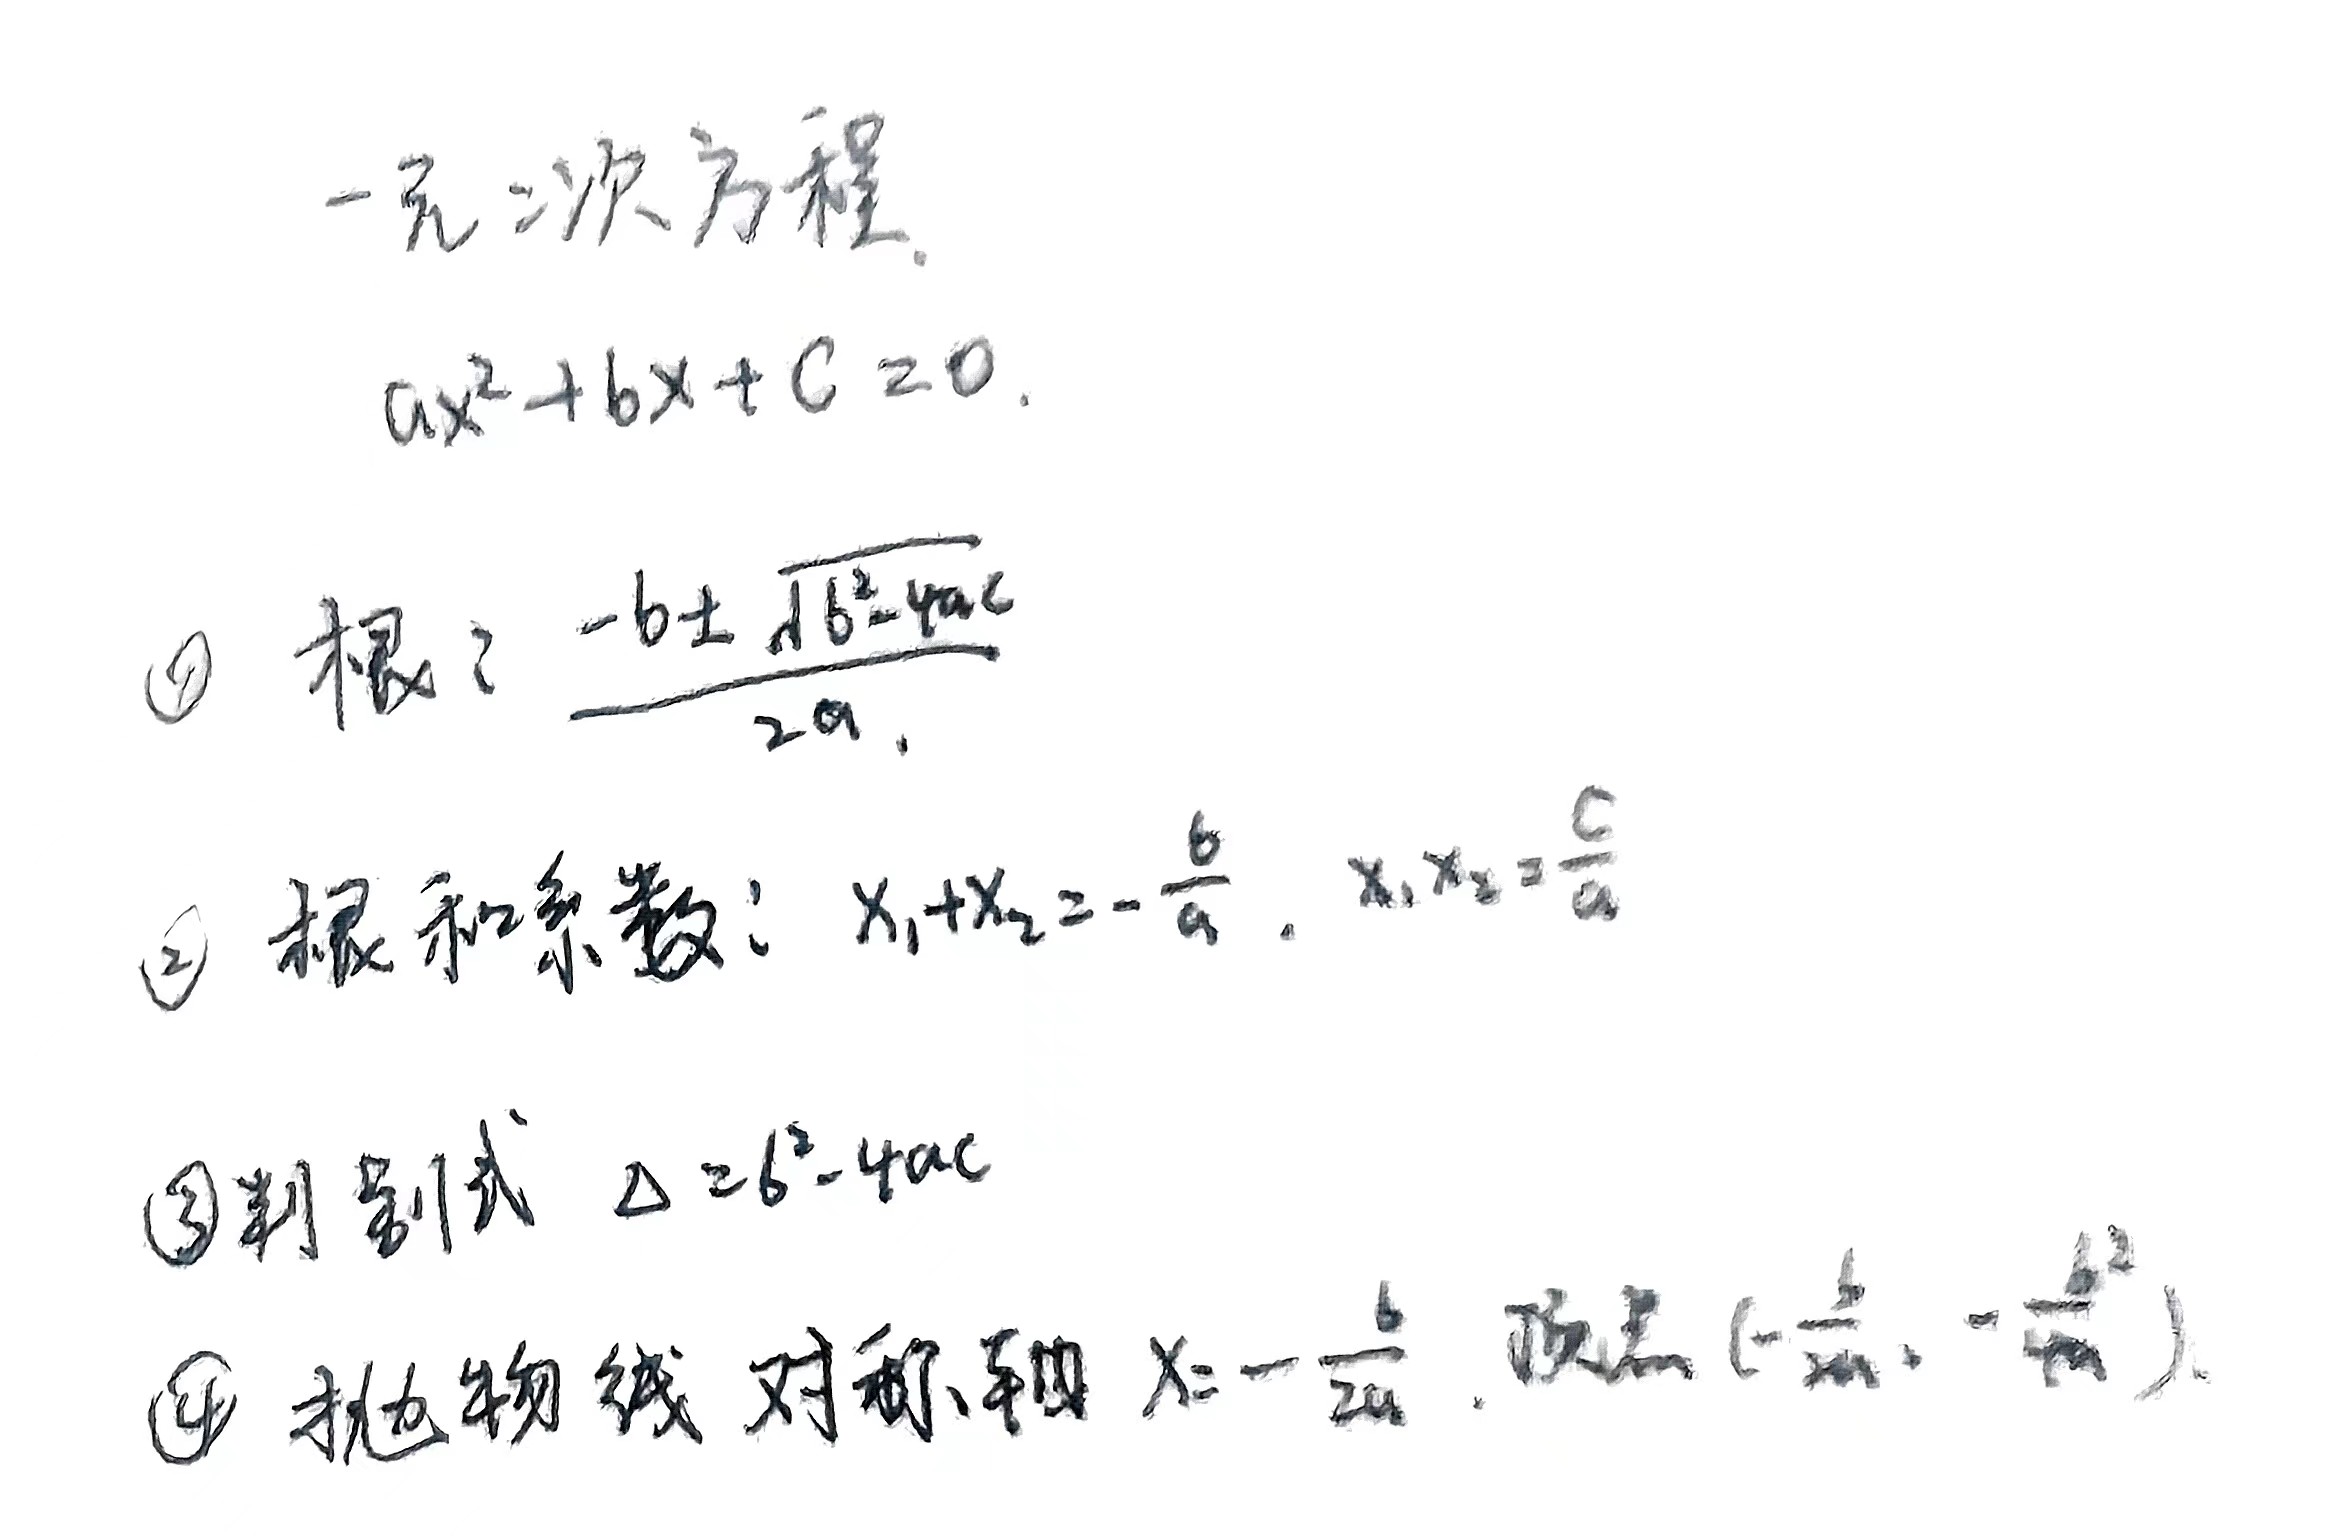 一元二次方程.
ax²+bx+c=0.
① 根: (-b±√(b²-4ac))/(2a).
② 根和系数: x₁+x₂=-b/a. x₁x₂=c/a
③ 判别式 Δ=b²-4ac
④ 抛物线 对称轴 x=-b/2a. 顶点 (-b/2a, -b²/4a).